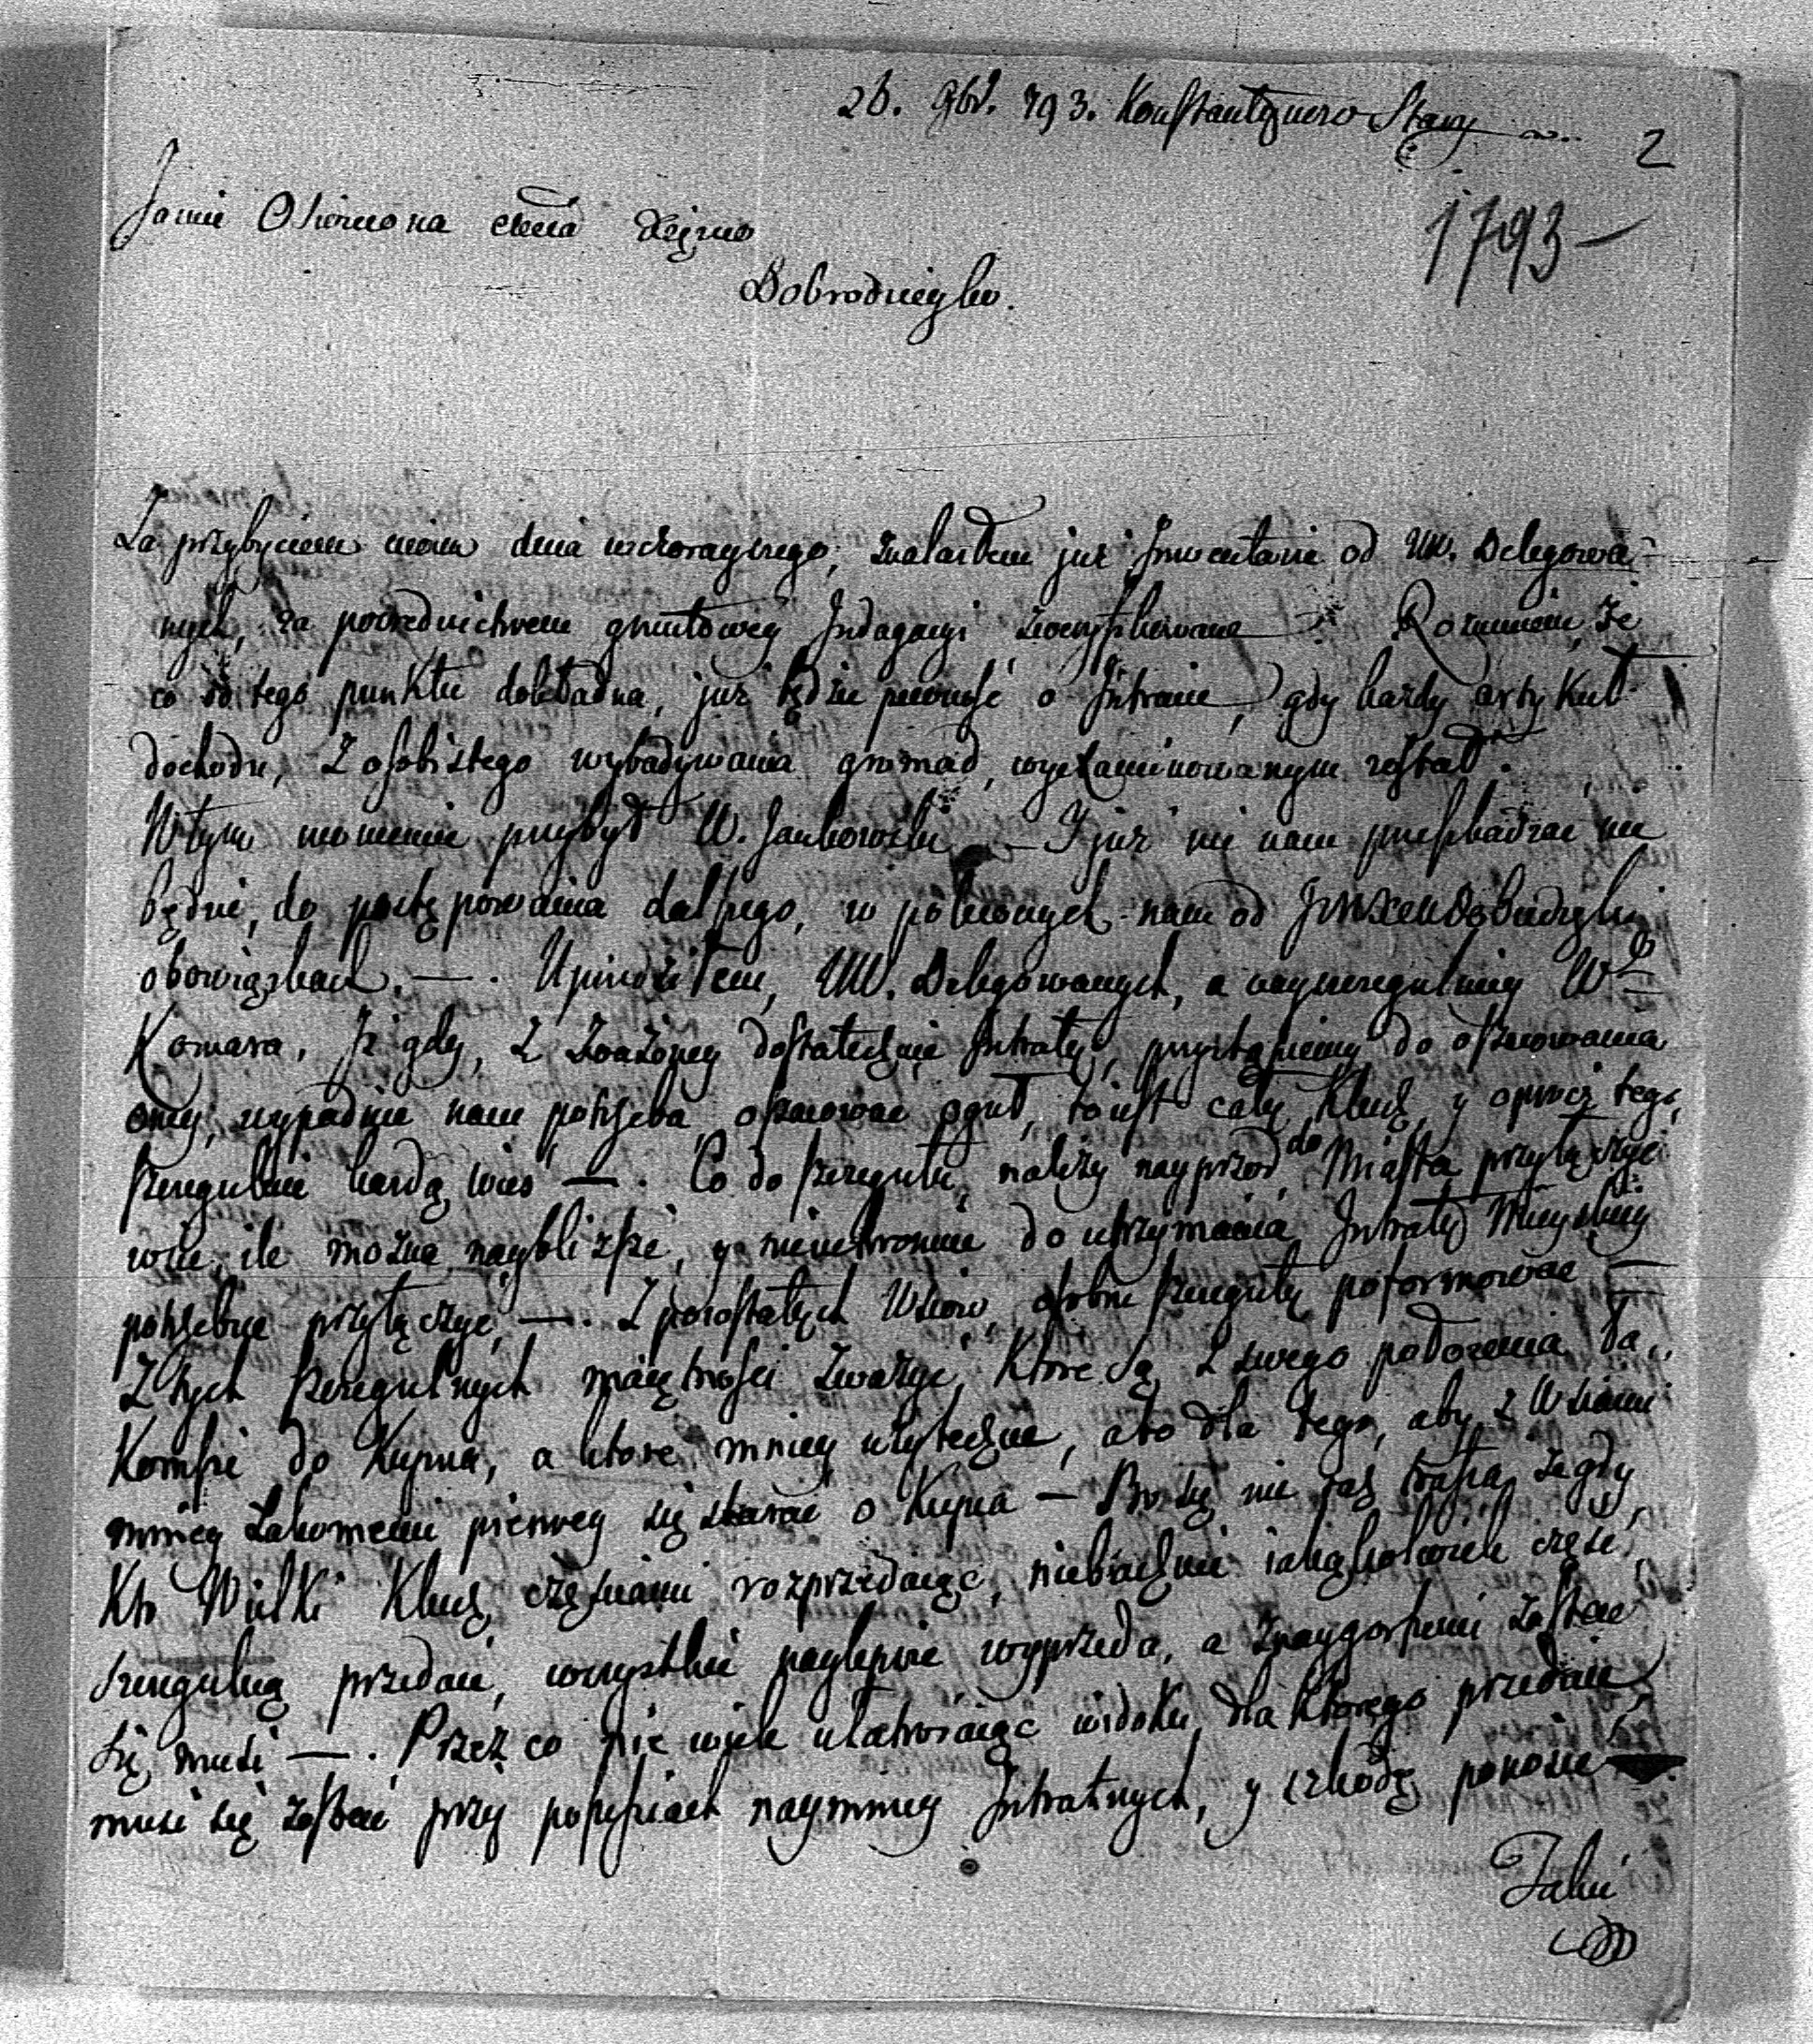 26. 9br. 793. Konstantynow Stary
2
1793-
Jaśnie Oświecona Xięzno
Dobrodzieyko.
Za przybyciem moim dnia wczorayszego, znalazłem już Inwentarze od UW. Delegowa-
nych, za posrednictwem gruntowey Indagacyi zweryfikowane Rozumiem, że
co do tego punktu dokładna, już będzie pewność o Intracie, gdy każdy artykuł
dochodu, z osobistego wybadywania gromad, wyexaminowanym został.
W tym momencie przybył W. Jankowski — I już nic nam przeszkadzać nie
będzie, do postępowania dalszego, w poleconych nam od
obowiązkach. — . Uprzedziłem, UW. Delegowanych, a nayszczegulniey W
Komara, Iż gdy, z zważoney dostatecznie Intraty, przystąpiemy do oszacowania
oney, wypadnie nam potrzeba oszacować oguł, to iest cały Klucz, y oprocz tego,
szczegulnie każdą wieś — . Co do szczegułu, należy nayprzod do Miasta przyłączyć
wsie, ile można naybliższe, y nieuchronnie do utrzymania Intraty Mieyskiey
potrzebne przyłączyć, — . Z pozostałych Wsiow, osobne szczeguły poformować —
Z tych szczegulnych maiętności zważyć, które są z swego położenia, ła„
Komsze do Kupna, a ktore mniey użyteczne, a to dla tego, aby z Wsiami
mniey Łakomemi pierwey się starać o Kupca — Bo się nie raz trafia, że gdy
Kto Wielki Klucz, częściami rozprzedaiąc, niebacznie iakążkolwiek część
szczegulną przedaie, wszystkie naylepsze wyprzeda, a z naygorszemi zostać
się musi — . Przez co nie wiele ułatwiaiąc widoku, dla ktorego przedaie
musi się zostać przy pozycyiach naymniey Intratnych, y szkodę ponosić
Jakie